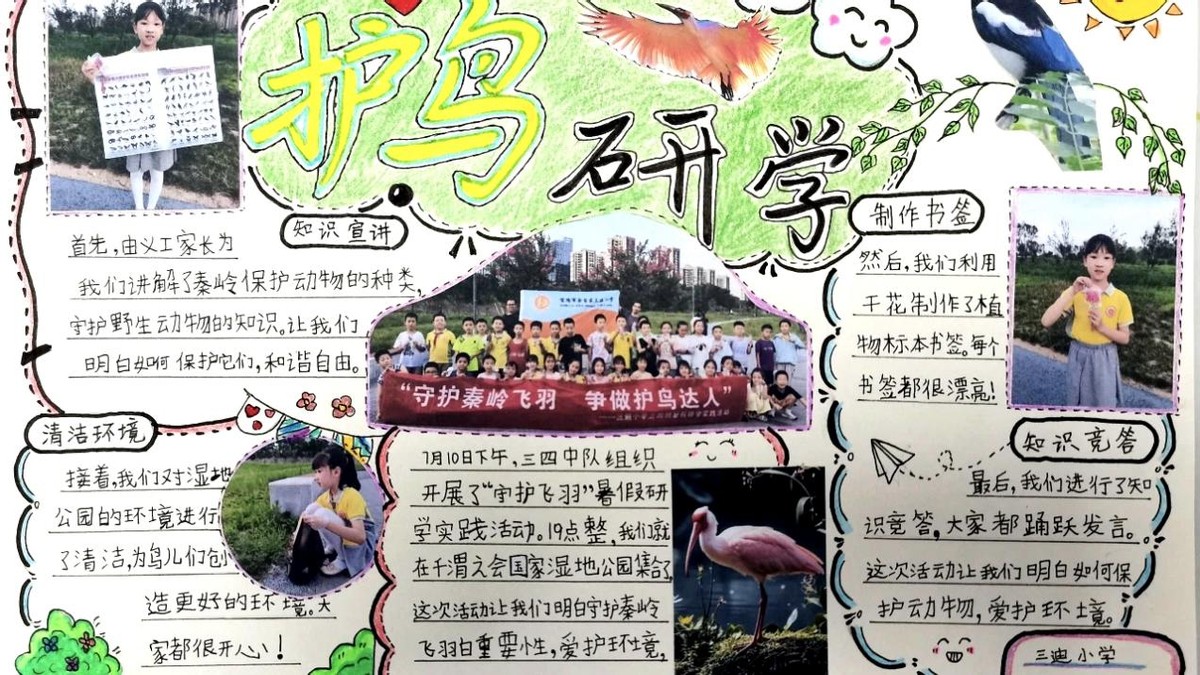 护鸟
研学
知识宣讲
首先,由义工家长为
我们讲解了秦岭保护动物的种类,
守护野生动物的知识。让我们
明白如何保护它们,和谐自由。
清洁环境
接着,我们对湿地
公园的环境进行
了清洁,为鸟儿们创
造更好的环境。大
家都很开心!
“守护秦岭飞羽 争做护鸟达人”
7月10日下午,三四中队组织
开展了“守护飞羽”暑假研
学实践活动。19点整,我们就
在千渭之会国家湿地公园集合了,
这次活动让我们明白守护秦岭
飞羽白重要性,爱护环境,
制作书签
然后,我们利用
干花制作了植
物标本书签。每个
书签都很漂亮!
知识竞答
最后,我们进行了知
识竞答,大家都踊跃发言。
这次活动让我们明白如何保
护动物,爱护环境。
三迪小学